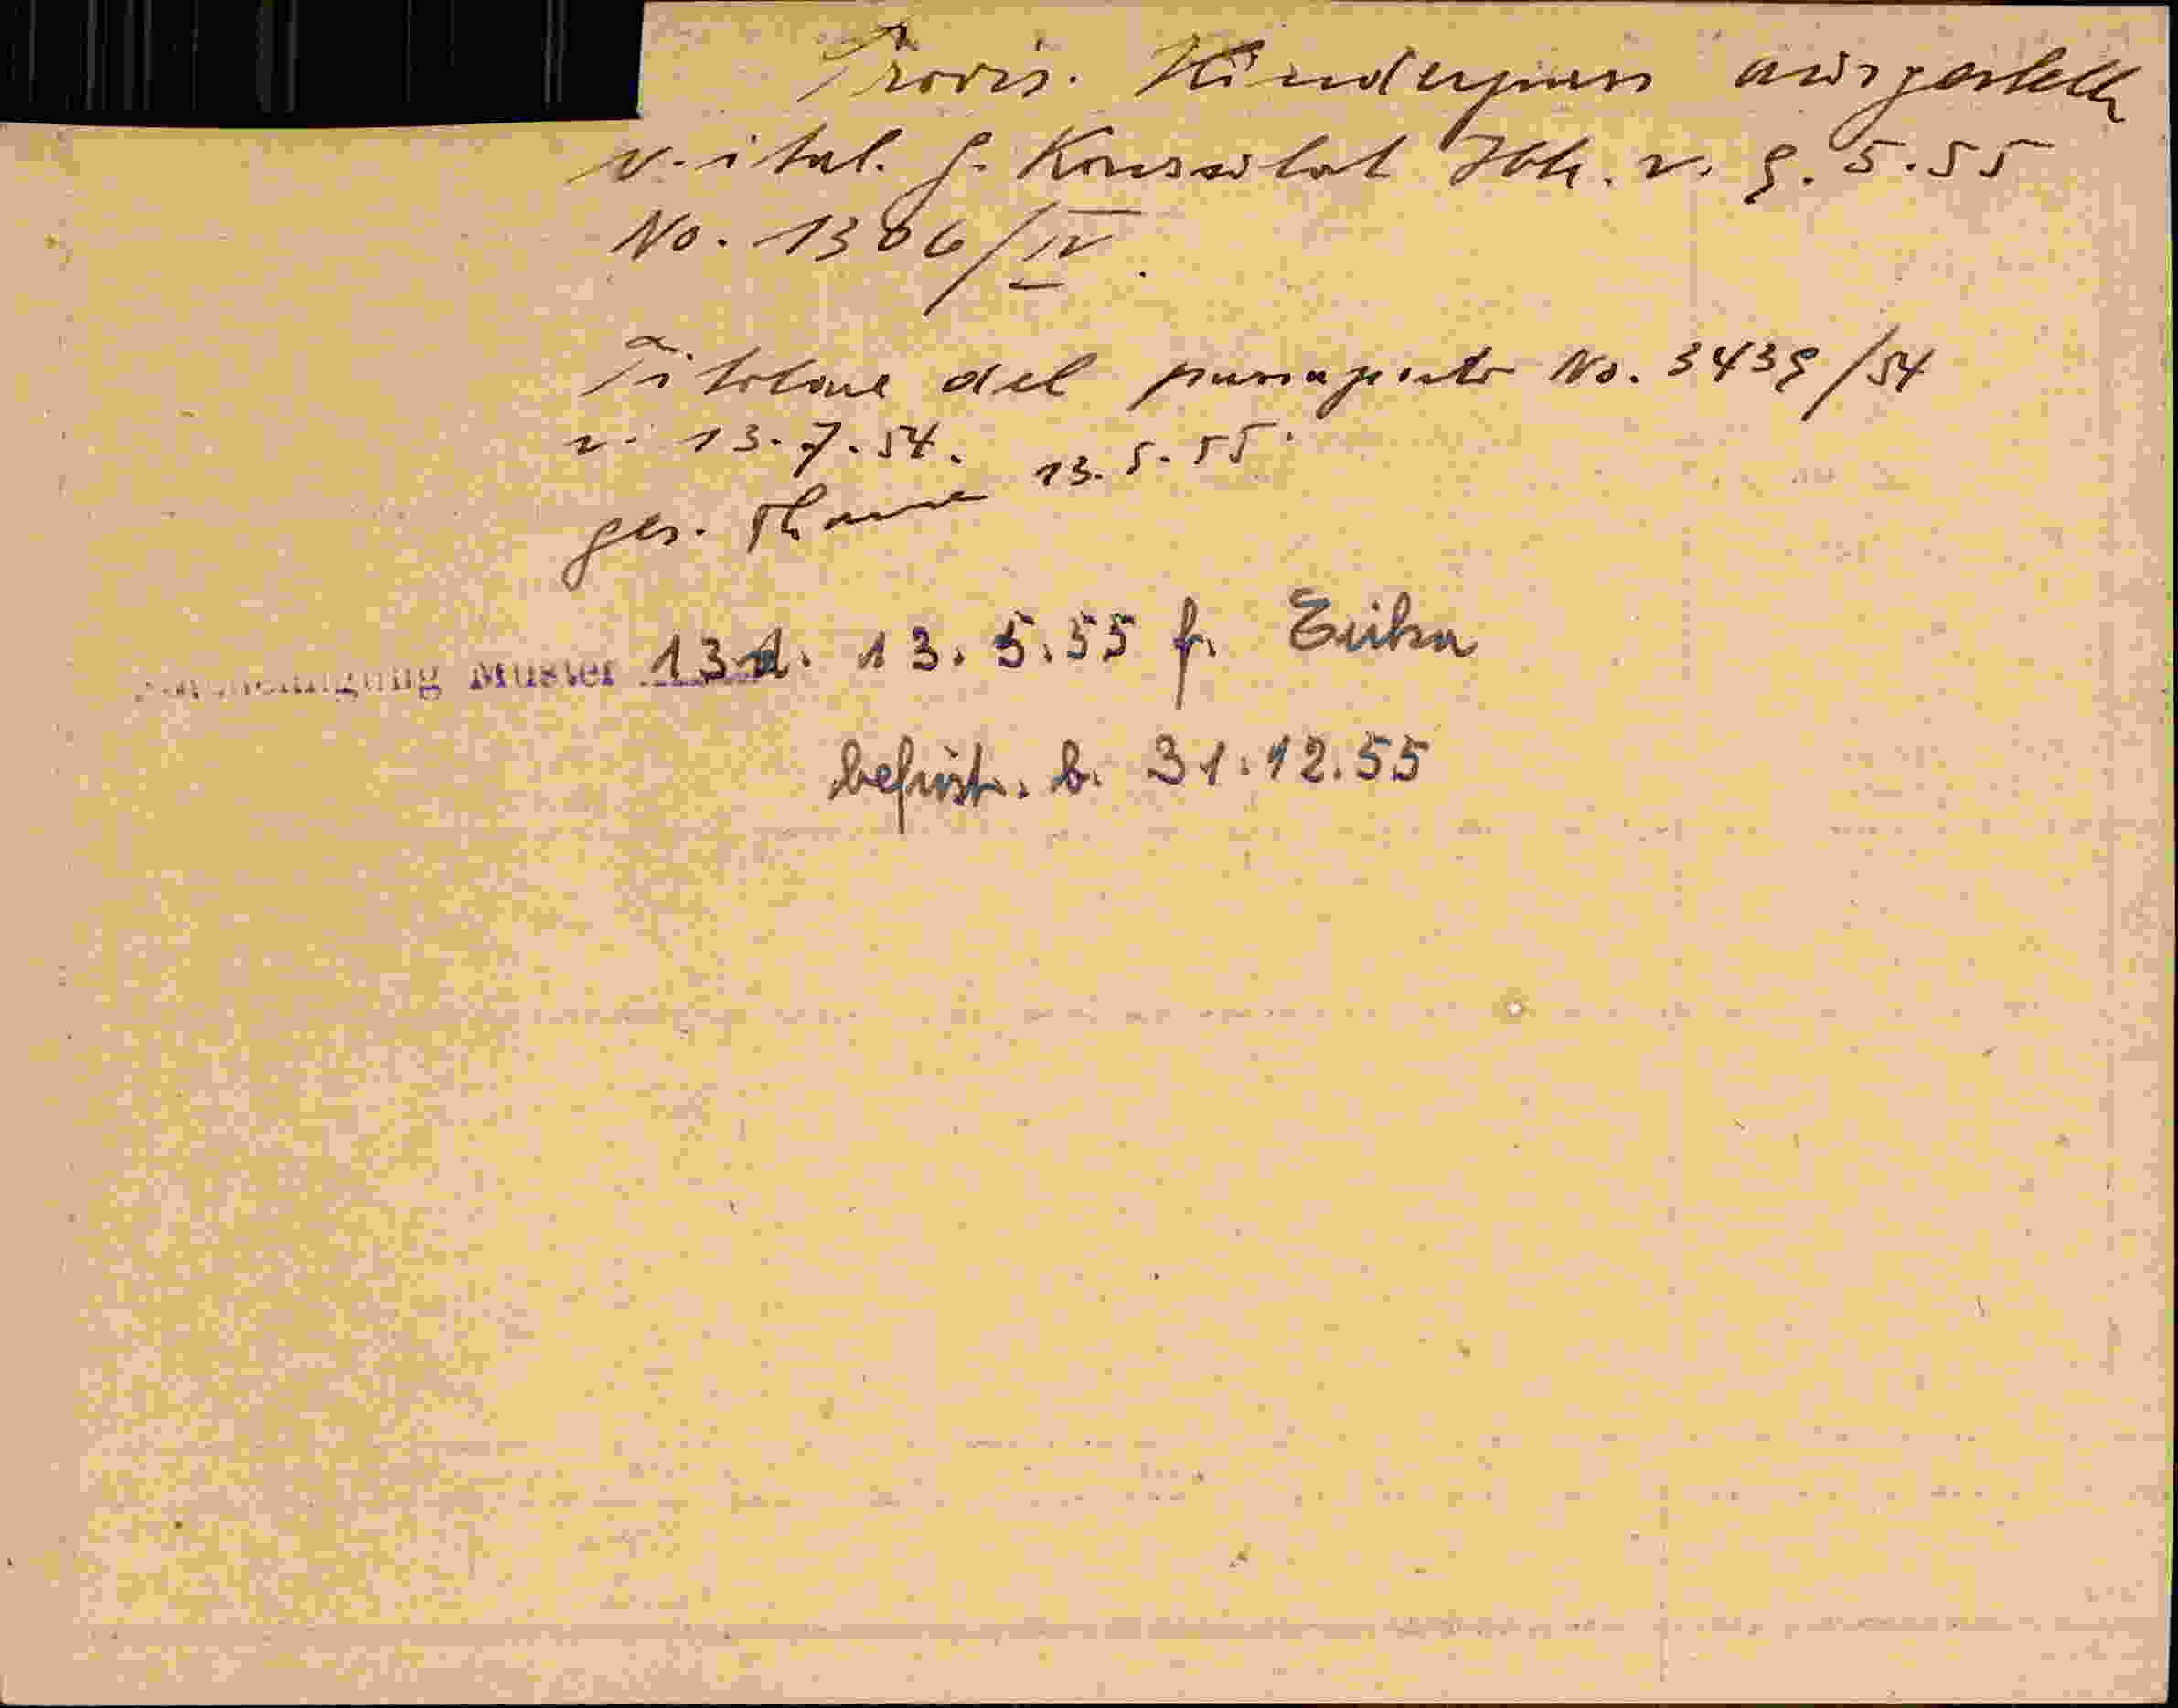 Provis. Kinderpass ausgestellt
v. ital. G. Konsulat Ibk. v. 9.5.55
No. 1306/IV.
Titolare del passaporto No. 3439/54
v. 13.7.54. 13.5.55
ges.
Muster 13d. 13.5.55 f. Erika
befrist. b. 31.12.55